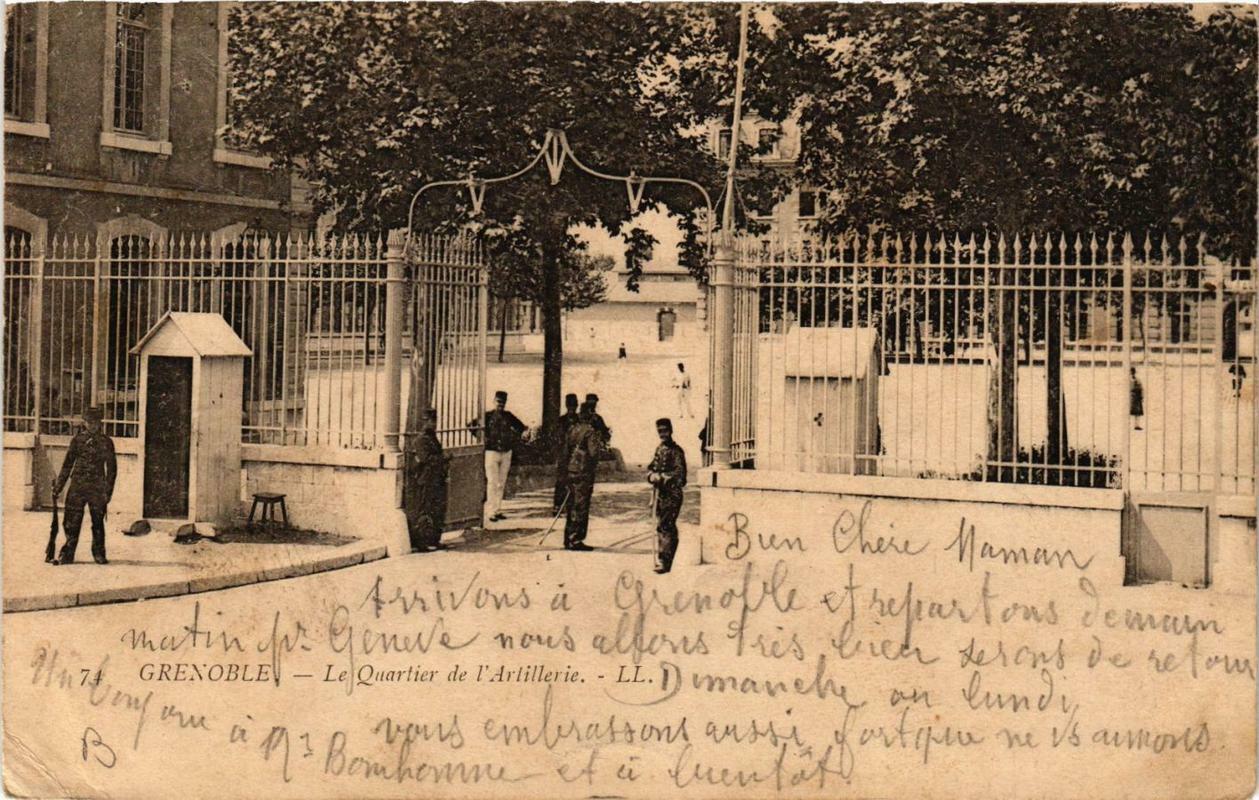 Bien Chère Maman
Arrivons à Grenoble et repartons demain
matin pr. Genève nous allons très bien serons de retour
74 GRENOBLE. — Le Quartier de l'Artillerie. - LL.
Dimanche ou lundi
vous embrassons aussi fort que ns vs aimons
Un bonjour à Mr Bonhomme et à bientôt.
B